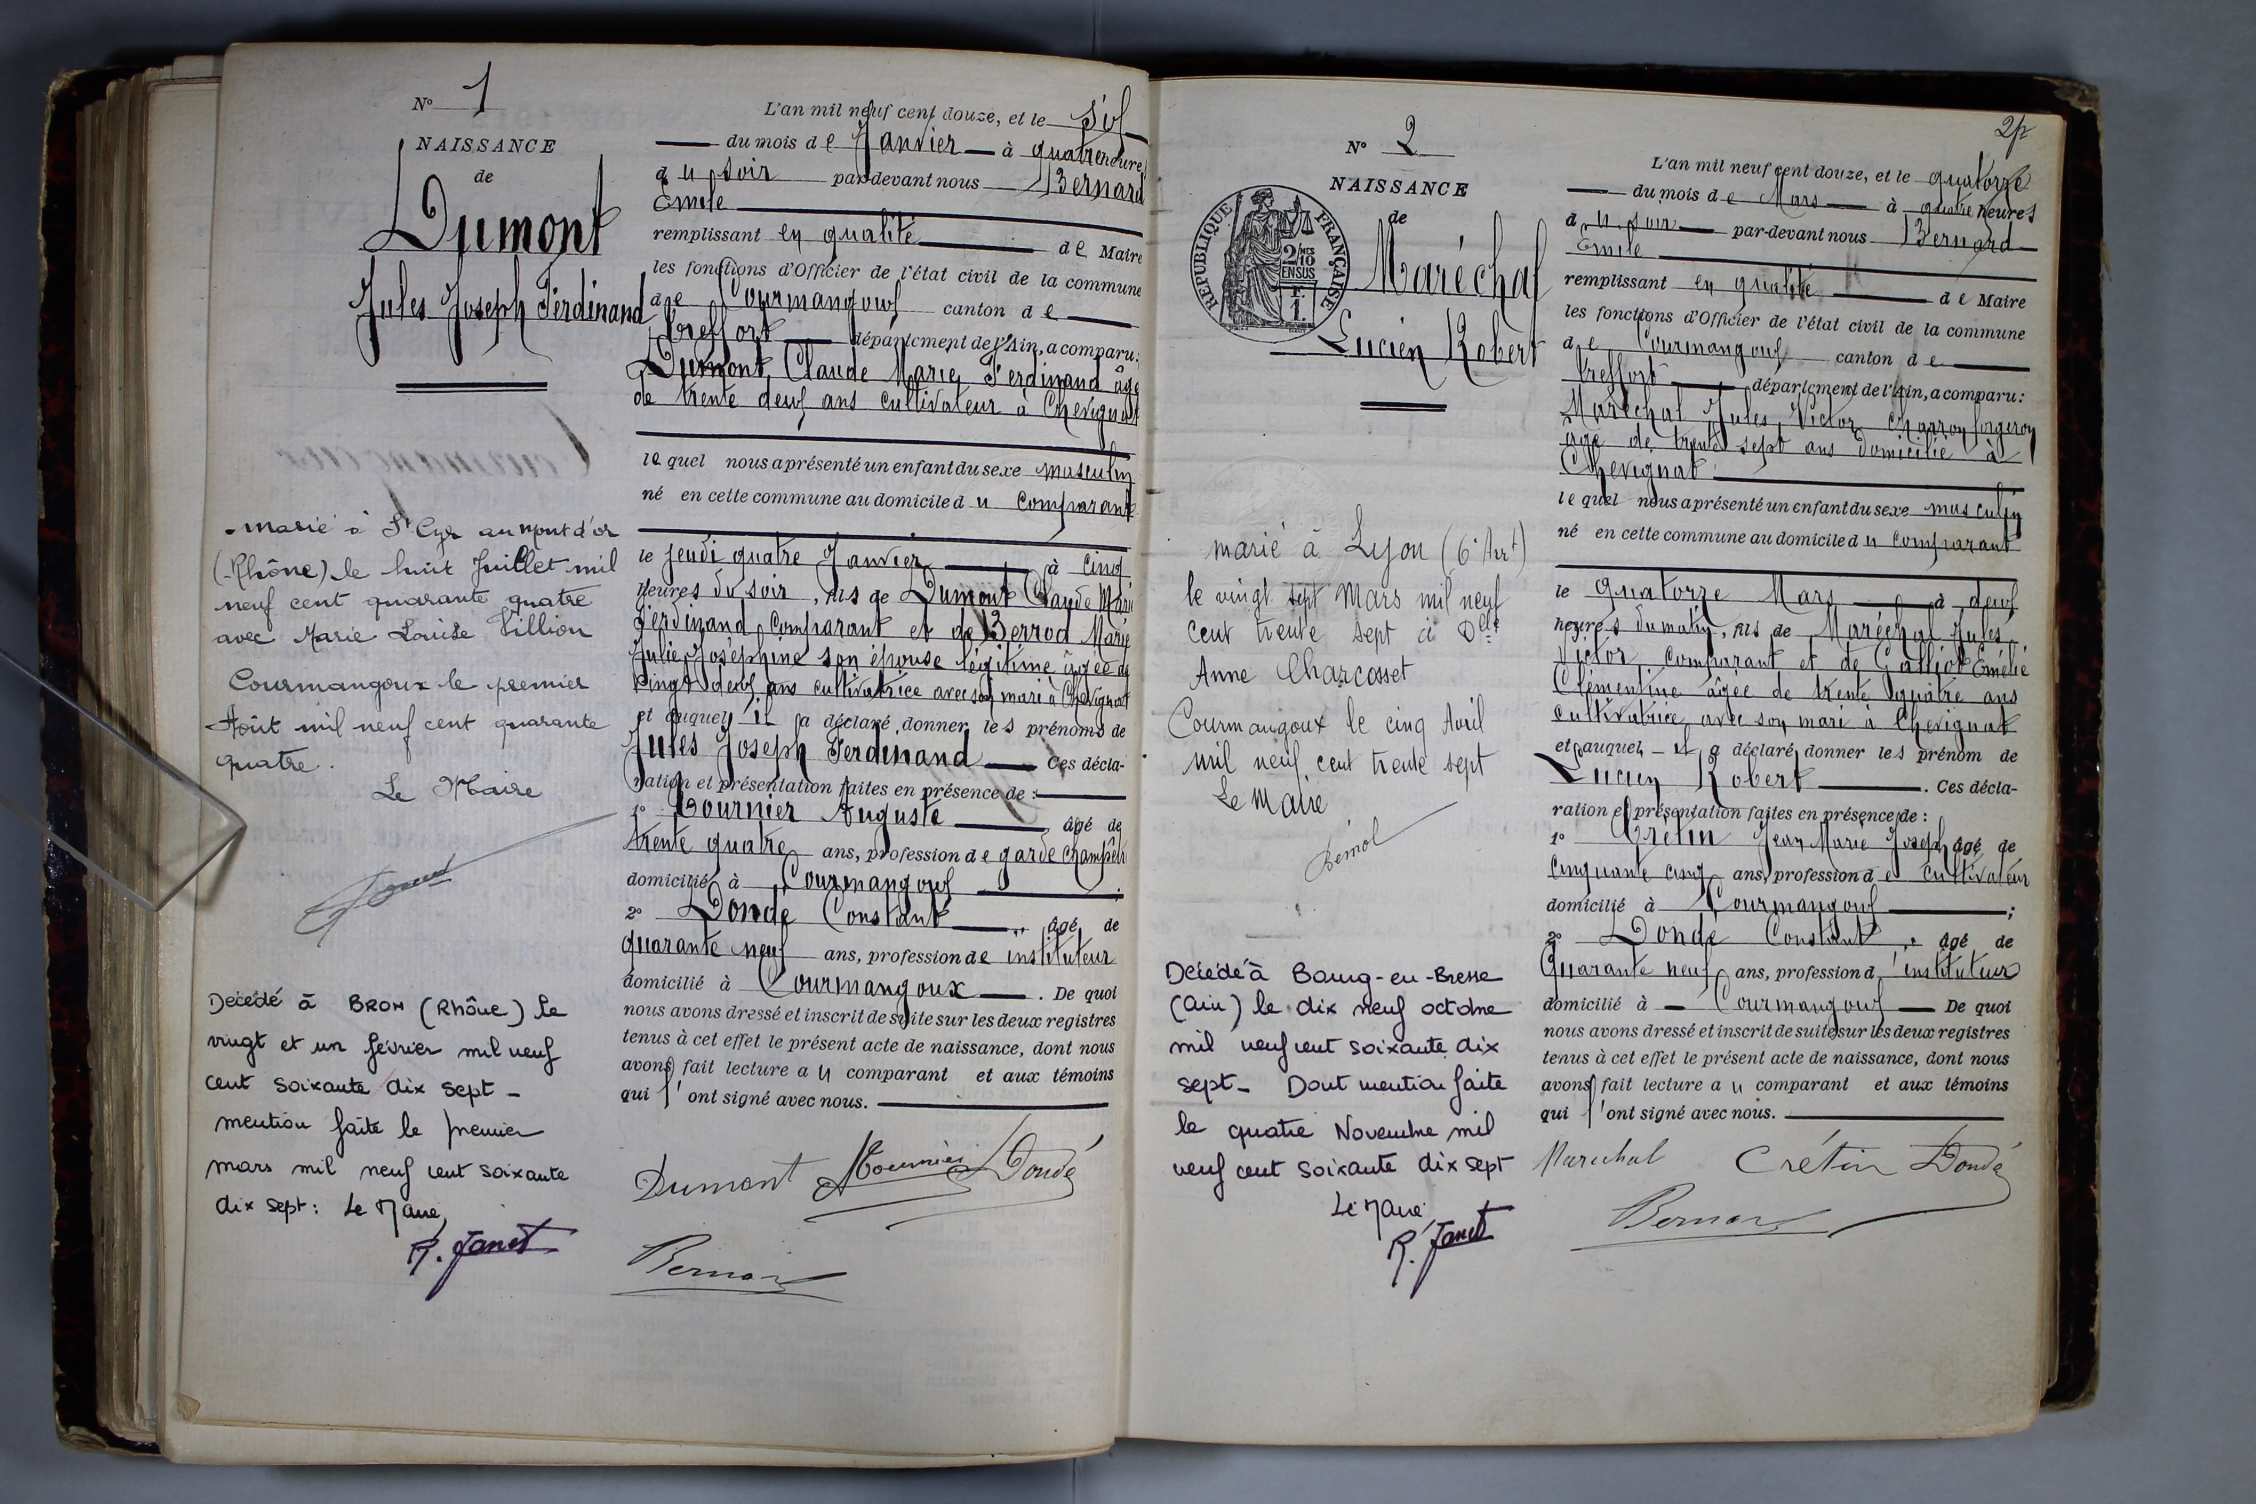 N° 1
NAISSANCE
de
Dumont
Jules Joseph Ferdinand
marié à St Cyr au Mont d'or
(Rhône) le huit Juillet mil
neuf cent quarante quatre
avec Marie Louise Villion
Courmangoux le premier
Août mil neuf cent quarante
quatre.
Le Maire
Décédé à BRON (Rhône) le
vingt et un février mil neuf
cent soixante dix sept -
mention faite le premier
mars mil neuf cent soixante
dix sept : Le Maire,
R. Janet
L'an mil neuf cent douze, et le six
du mois de Janvier à quatre heures
du soir par-devant nous Bernard
Emile
remplissant en qualité de Maire
les fonctions d'Officier de l'état civil de la commune
de Courmangoux canton de
Treffort département de l'Ain, a comparu:
Dumont Claude Marie Ferdinand âgé
de trente deux ans cultivateur à Chevignat
lequel nous a présenté un enfant du sexe masculin
né en cette commune au domicile du comparant
le jeudi quatre Janvier à cinq
heures du soir, fils de Dumont Claude Marie
Ferdinand, comparant et de Berrod Marie
Julie Joséphine son épouse légitime âgée de
vingt deux ans cultivatrice avec son mari à Chevignat
et auquel il a déclaré donner les prénoms de
Jules Joseph Ferdinand Ces décla-
ration et présentation faites en présence de :
1° Tournier Auguste âgé de
trente quatre ans, profession de garde champêtre
domicilié à Courmangoux ;
2° Dondé Constant âgé de
quarante neuf ans, profession de instituteur
domicilié à Courmangoux . De quoi
nous avons dressé et inscrit de suite sur les deux registres
tenus à cet effet le présent acte de naissance, dont nous
avons fait lecture au comparant et aux témoins
qui l'ont signé avec nous.
Dumont Tournier Dondé
Bernard
N° 2
NAISSANCE
de
RÉPUBLIQUE FRANÇAISE
2/10
EN SUS
1
Maréchal
Lucien Robert
marié à Lyon (6e Arrt)
le vingt sept Mars mil neuf
cent trente sept à Delle
Anne Charcosset
Courmangoux le cinq Avril
mil neuf cent trente sept
Le Maire
Décédé à Bourg-en-Bresse
(Ain) le dix neuf octobre
mil neuf cent soixante dix
sept - Dont mention faite
le quatre Novembre mil
neuf cent soixante dix sept
Le Maire
R. Janet
L'an mil neuf cent douze, et le quatorze
du mois de Mars à quatre heures
du soir par-devant nous Bernard
Emile
remplissant en qualité de Maire
les fonctions d'Officier de l'état civil de la commune
de Courmangoux canton de
Treffort département de l'Ain, a comparu:
Maréchal Jules Victor charron forgeron
âgé de trente sept ans domicilié à
Chevignat
lequel nous a présenté un enfant du sexe masculin
né en cette commune au domicile du comparant
le quatorze Mars à deux
heures du matin, fils de Maréchal Jules
Victor, comparant et de Galliot Emélie
Clémentine âgée de trente quatre ans
cultivatrice avec son mari à Chevignat
et auquel il a déclaré donner les prénom de
Lucien Robert . Ces décla-
ration et présentation faites en présence de :
1° Crétin Jean Marie Joseph âgé de
cinquante cinq ans, profession de cultivateur
domicilié à Courmangoux ;
2° Dondé Constant âgé de
Quarante neuf ans, profession d'instituteur
domicilié à Courmangoux De quoi
nous avons dressé et inscrit de suite sur les deux registres
tenus à cet effet le présent acte de naissance, dont nous
avons fait lecture au comparant et aux témoins
qui l'ont signé avec nous.
Maréchal Crétin Dondé
Bernard